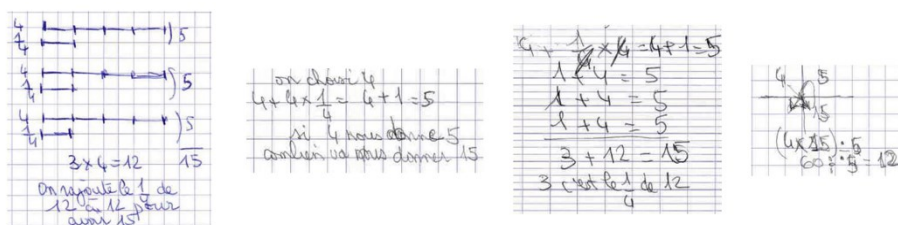 4
1/4
5
4
1/4
5
4
1/4
5
3 x 4 = 12
15
On rajoute le 1/4 de
12 à 12 pour
avoir 15
on choisi 4
4 + 4 x 1/4 = 4 + 1 = 5
si 4 nous donne 5
combien va nous donner 15
4 + 1/4 x 4 = 4 + 1 = 5
1 + 4 = 5
1 + 4 = 5
1 + 4 = 5
3 + 12 = 15
3 c'est le 1/4 de 12
4 5
15
(4 x 15) : 5
60 : 5 = 12